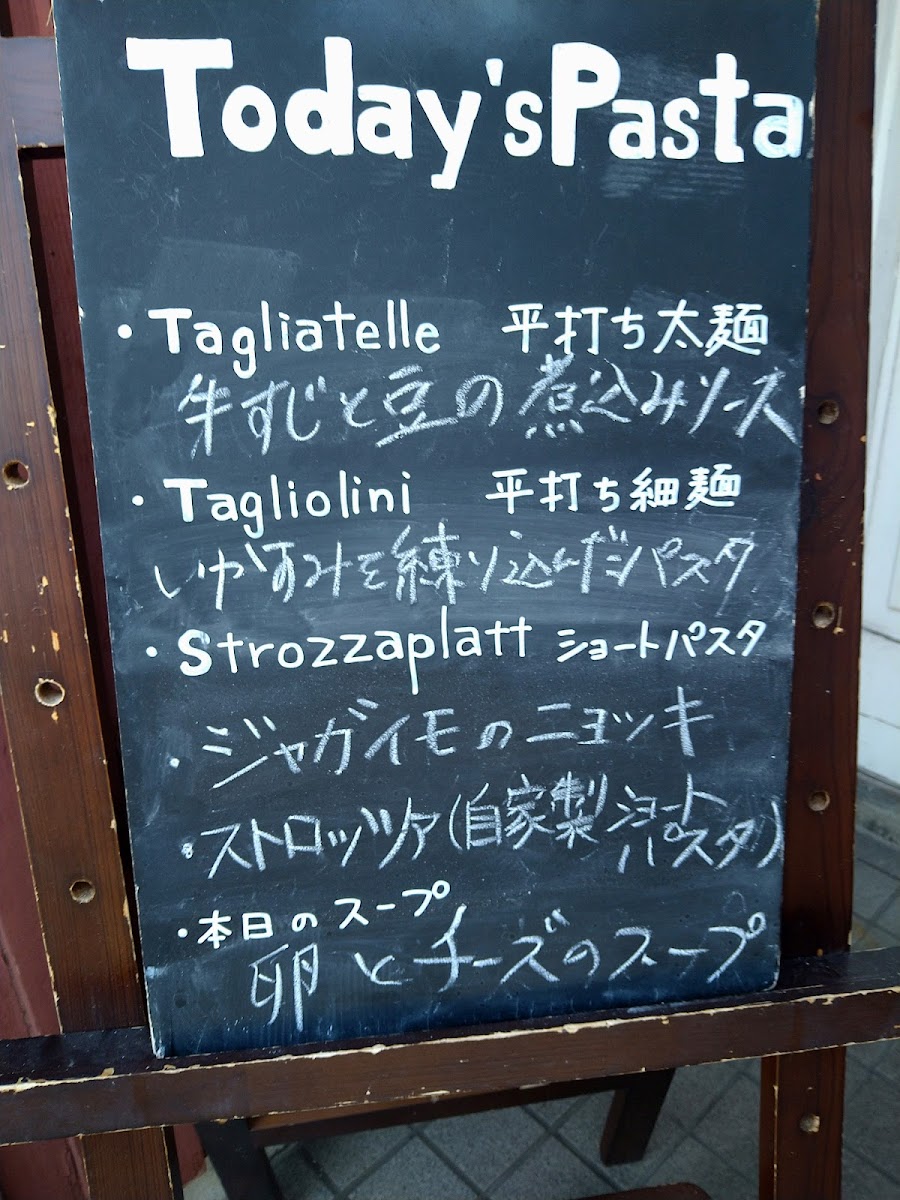 Today's Pasta
・Tagliatelle 平打ち太麺
牛すじと豆の煮込みソース
・Tagliolini 平打ち細麺
いかすみを練り込んだパスタ
・Strozzaplatt ショートパスタ
・ジャガイモのニョッキ
・ストロッツァ(自家製ショートパスタ)
・本日のスープ
卵とチーズのスープ